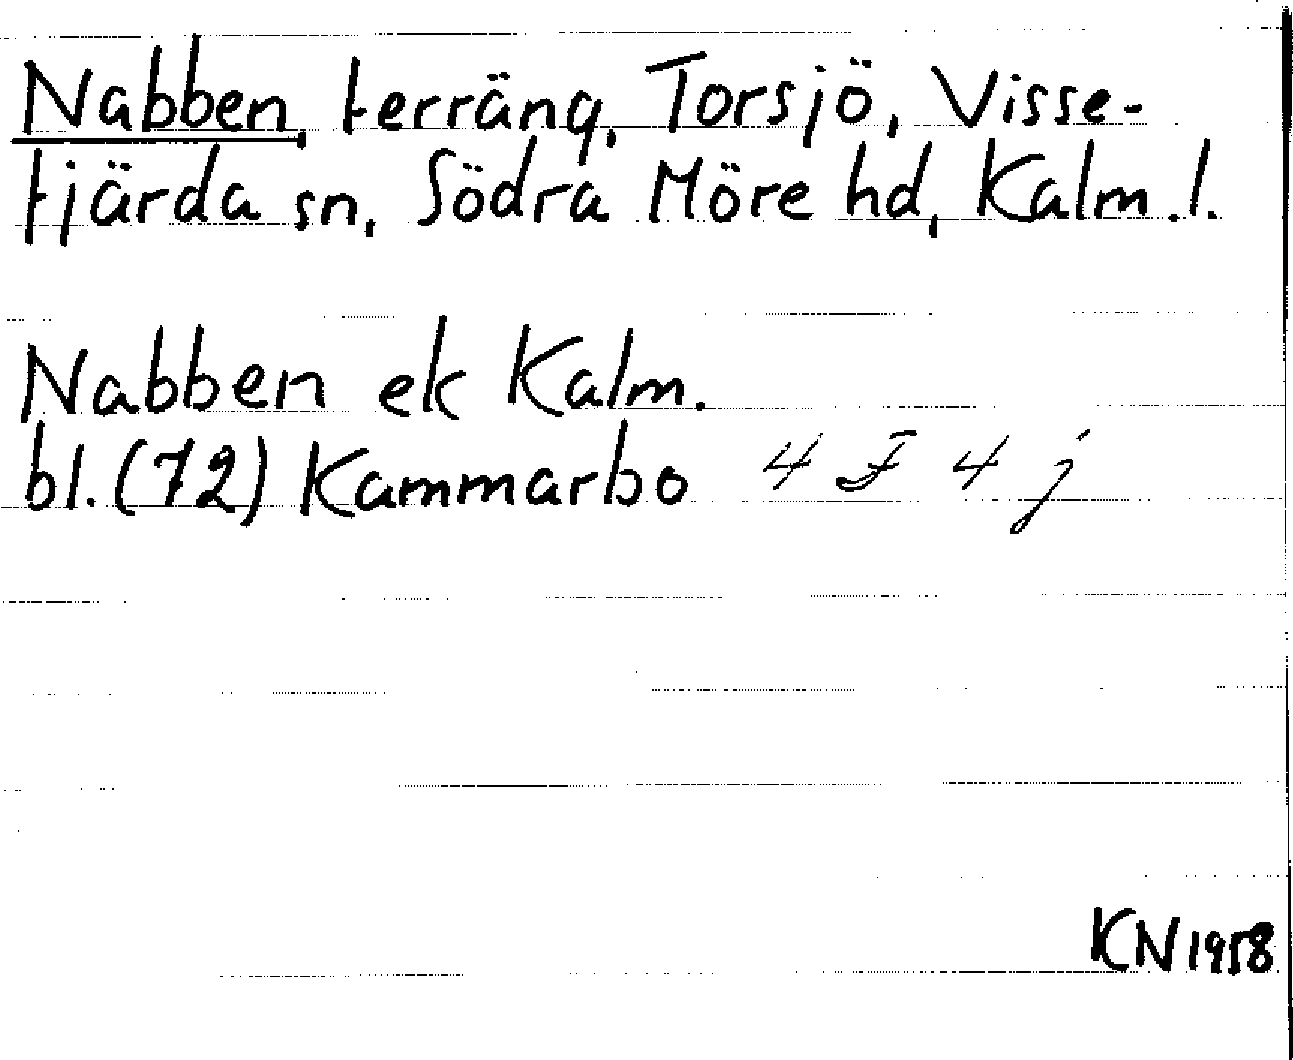 Nabben, terräng, Torsjö, Visse-
fjärda sn, Södra Möre hd, Kalm.l.
Nabben ek Kalm.
bl. (72) Kammarbo 4 F 4 j
KN 1958